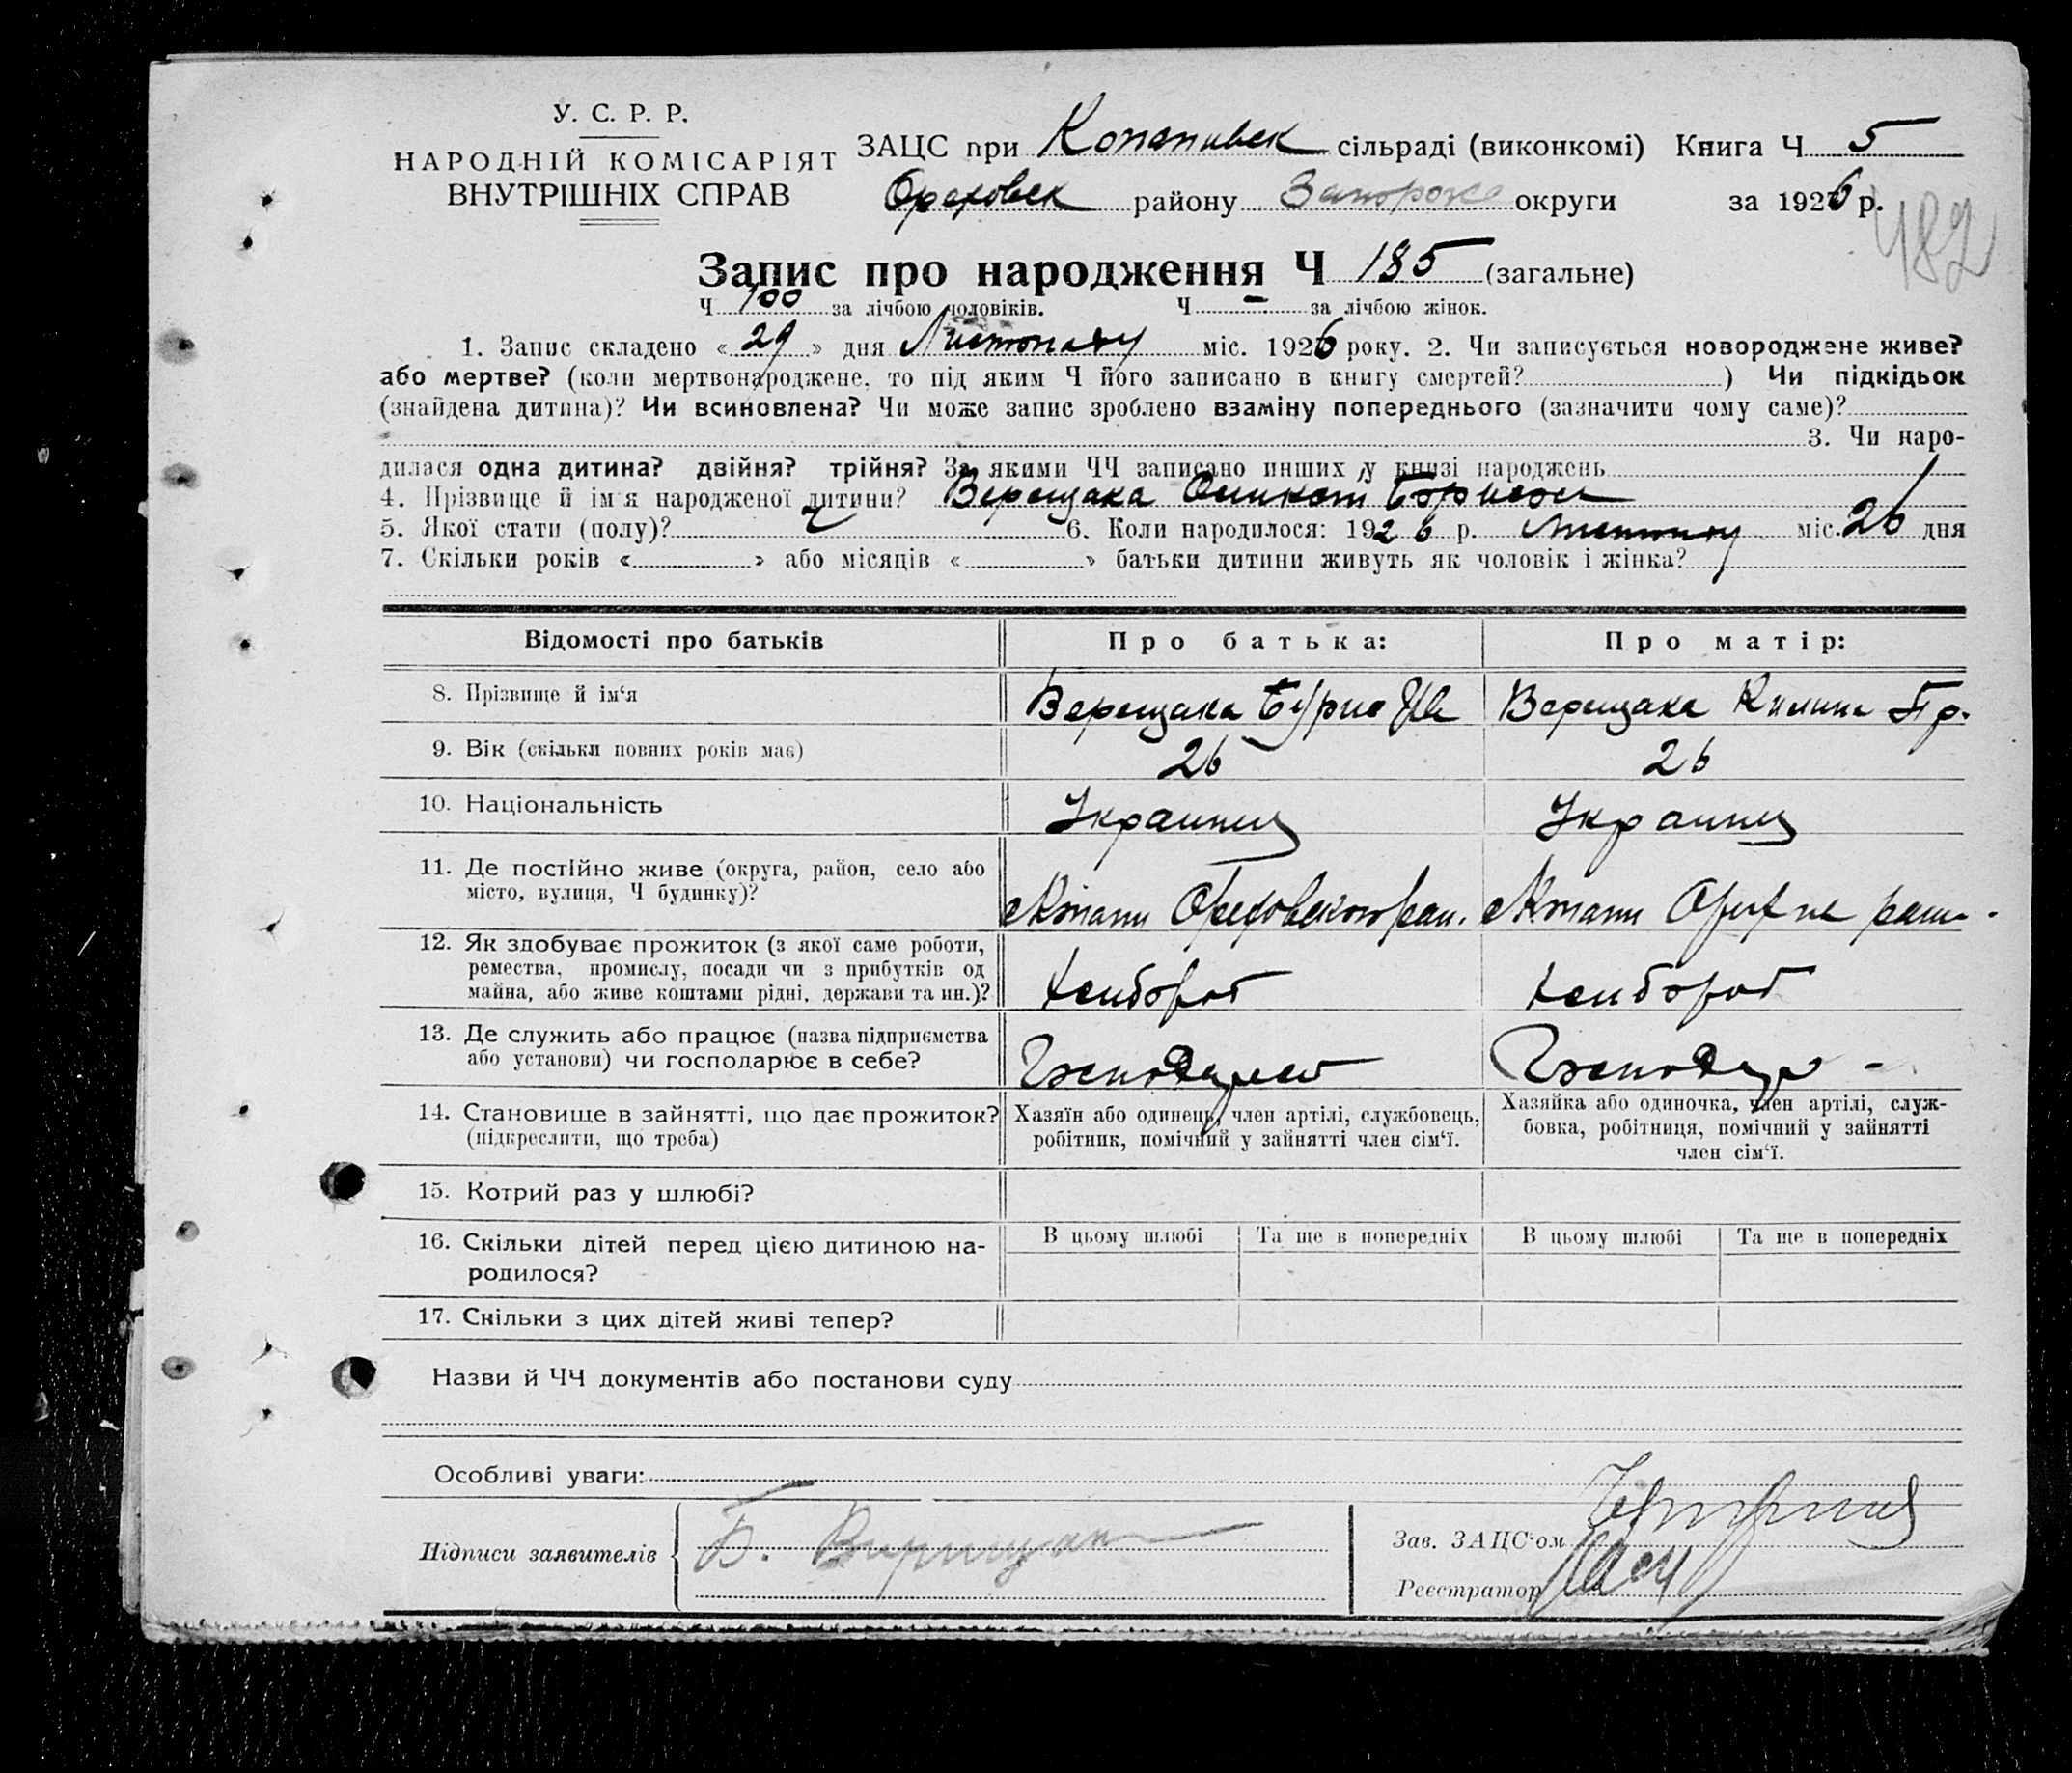 У. С. Р. Р.
НАРОДНІЙ КОМІСАРІЯТ
ВНУТРІШНІХ СПРАВ
ЗАЦС при Копанивск сільраді (виконкомі) Книга Ч 5
Ореховск району Запорож округи за 1926 р.
482
Запис про народження Ч 185 (загальне)
Ч 100 за лічбою чоловіків. Ч — за лічбою жінок.
1. Запис складено « 29 » дня Листопаду міс. 1926 року. 2. Чи записується новороджене живе?
або мертве? (коли мертвонароджене, то під яким Ч його записано в книгу смертей? ) Чи підкідьок
(знайдена дитина)? Чи всиновлена? Чи може запис зроблено взаміну попереднього (зазначити чому саме)?
3. Чи наро-
дилася одна дитина? двійня? трійня? За якими ЧЧ записано инших у книзі народжень
4. Прізвище й ім'я народженої дитини? Верещака
5. Якої стати (полу)? ч 6. Коли народилося: 1926 р. Листопаду міс. 26 дня
7. Скільки років « » або місяців « » батьки дитини живуть як чоловік і жінка?
Відомості про батьків Про батька: Про матір:
8. Прізвище й ім'я Верещака Борис Ив Верещака Килина Пр.
9. Вік (скільки повних років має) 26 26
10. Національність Украинец Украинец
11. Де постійно живе (округа, район, село або
місто, вулиця, Ч будинку)? Копани Ореховского рай. Копани
12. Як здобуває прожиток (з якої саме роботи,
ремества, промислу, посади чи з прибутків од
майна, або живе коштами рідні, держави та ин.)? Хлибороб Хлибороб
13. Де служить або працює (назва підприємства
або установи) чи господарює в себе?
14. Становище в зайнятті, що дає прожиток?
(підкреслити, що треба)
Хазяїн або одинець, член артілі, службовець,
робітник, помічний у зайнятті член сім'ї.
Хазяйка або одиночка, член артілі, служ-
бовка, робітниця, помічний у зайнятті
член сім'ї.
15. Котрий раз у шлюбі?
16. Скільки дітей перед цією дитиною на-
родилося?
В цьому шлюбі Та ще в попередніх В цьому шлюбі Та ще в попередніх
17. Скільки з цих дітей живі тепер?
Назви й ЧЧ документів або постанови суду
Особливі уваги:
Підписи заявителів Б. Вирищак
Зав. ЗАЦС'ом
Реєстратор